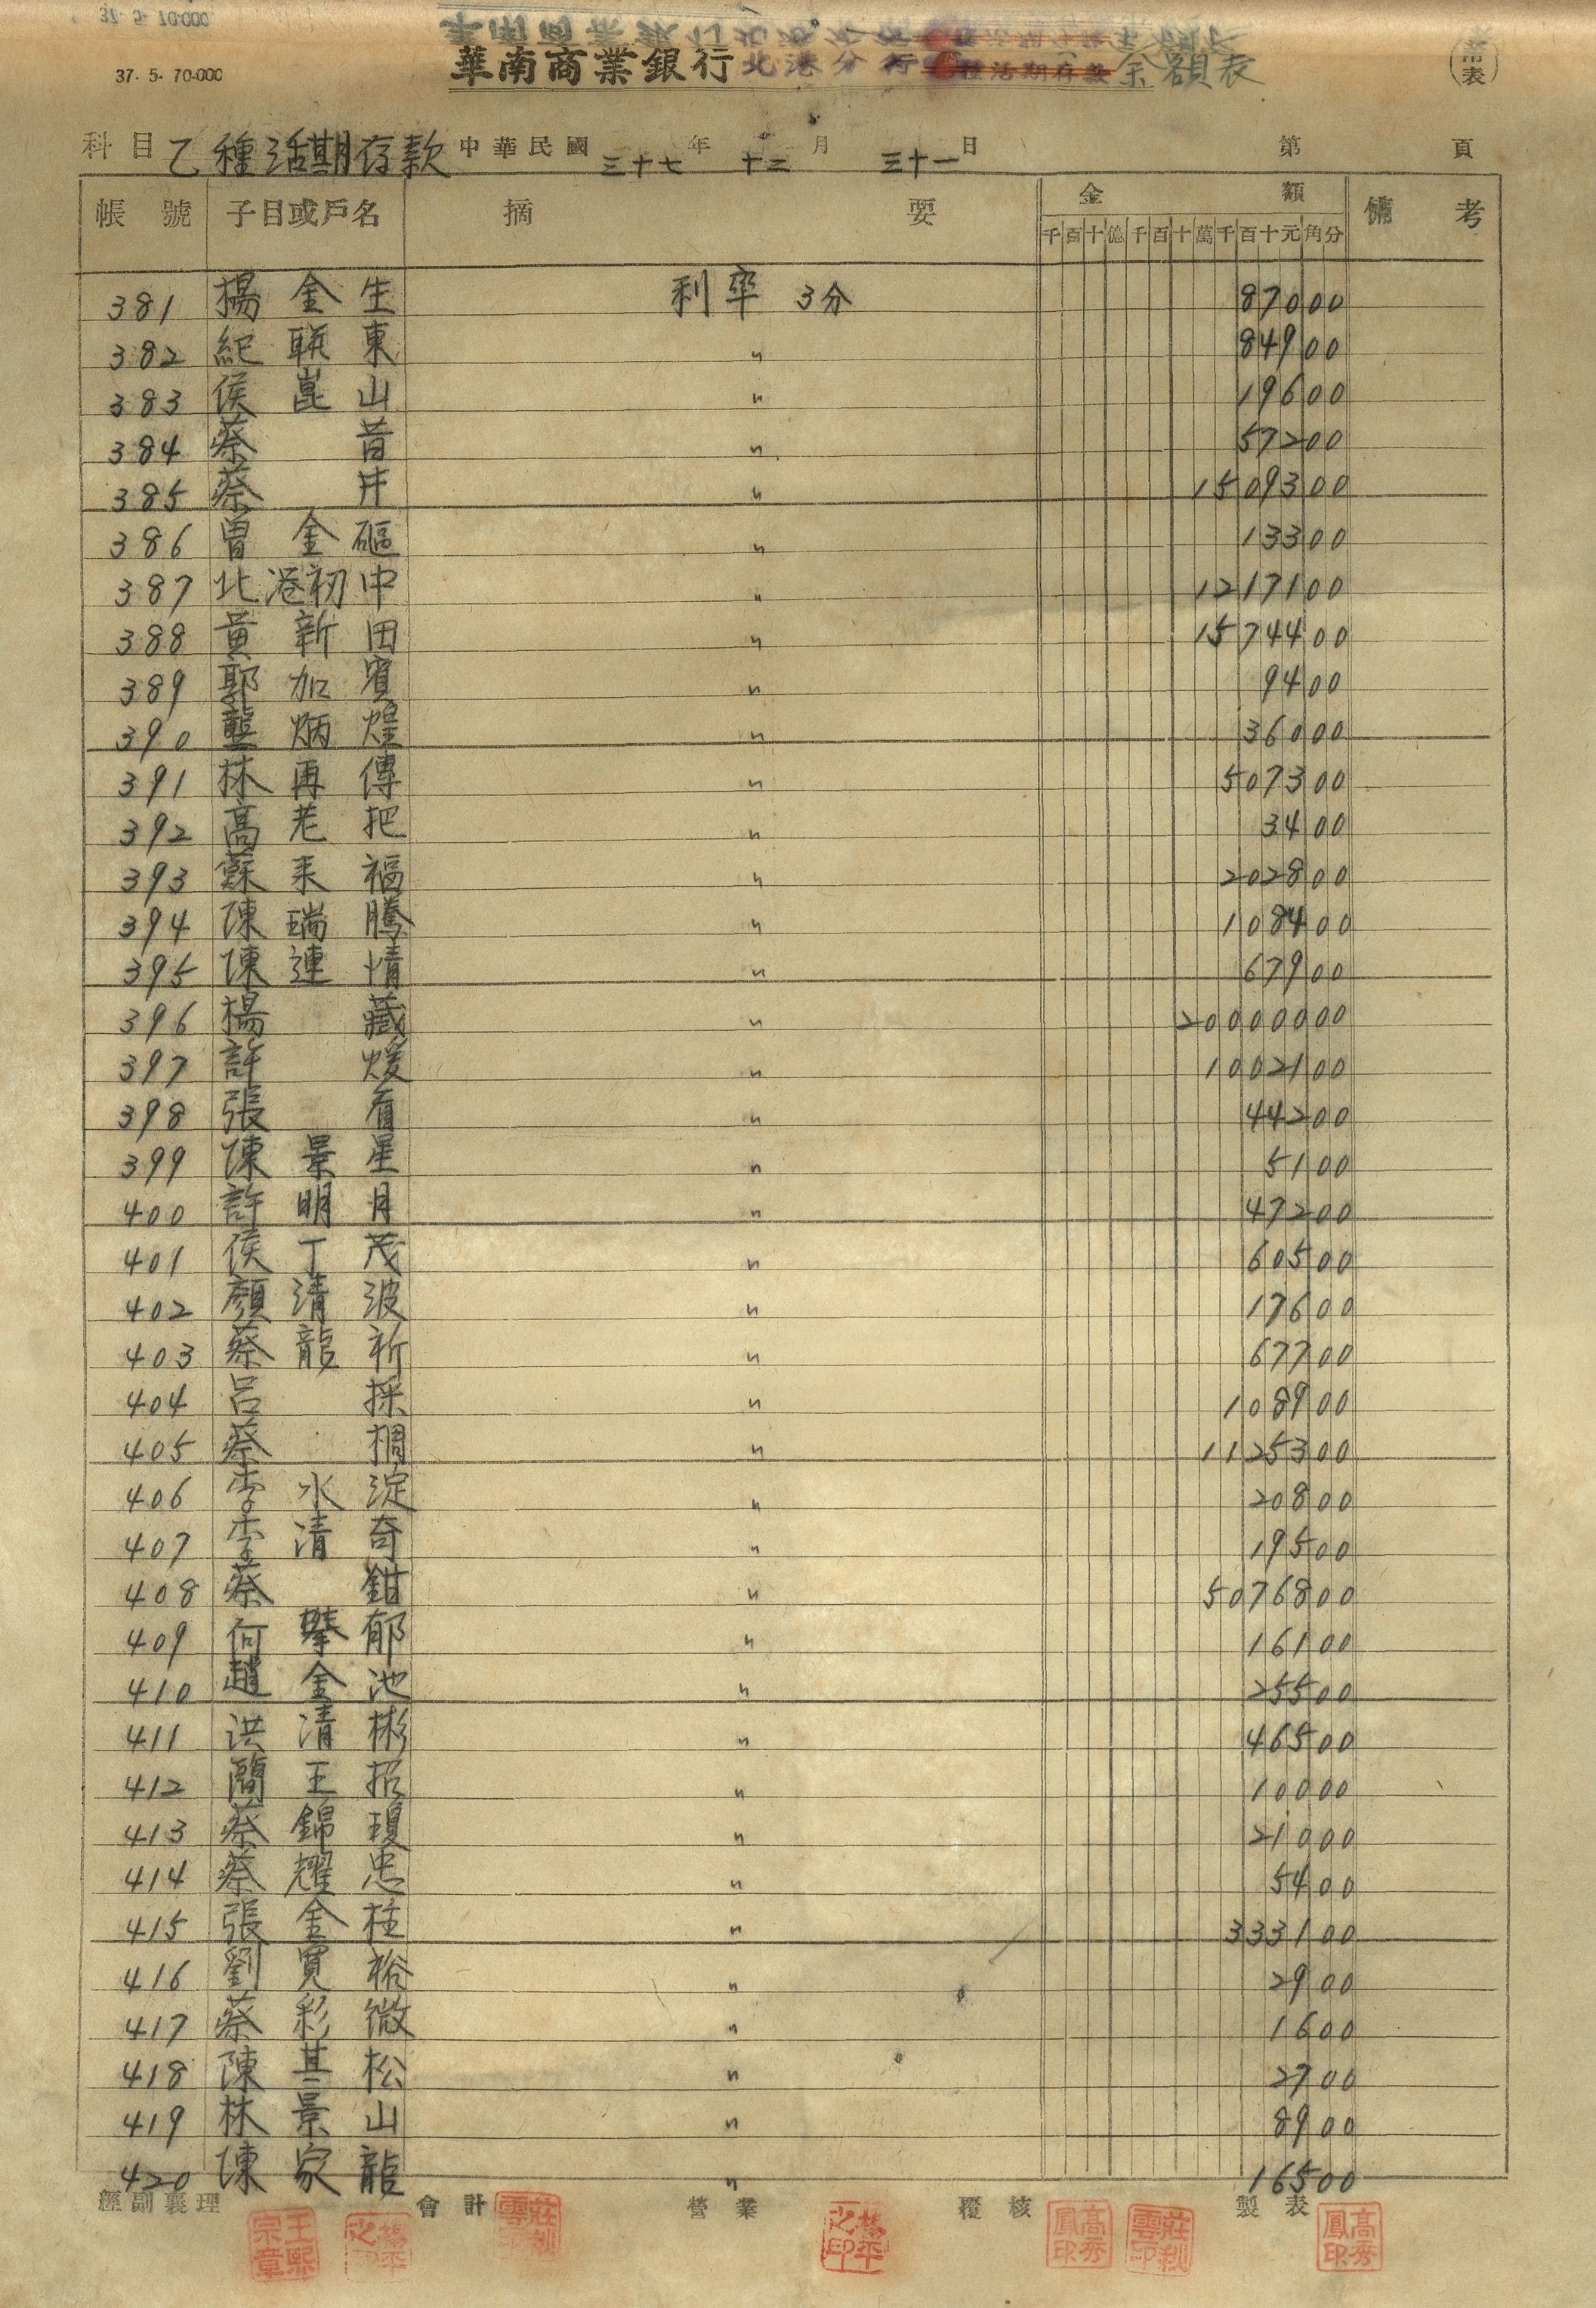 37. 5. 70.000
華南商業銀行北港分行 余額表
科目 乙種活期存款 中華民國 三十七 年 十二 月 三十一 日 第 頁
帳號 子目或戶名 摘要 金額 備考
千百十億千百十萬千百十元角分
381 楊金生 利率 3分 87000
382 紀聯東 〃 84900
383 侯崑山 〃 19600
384 蔡昔 〃 57200
385 蔡井 〃 1509300
386 曾金磘 〃 13300
387 北港初中 〃 1217100
388 黃新田 〃 1574400
389 郭加賓 〃 9400
390 龔炳煌 〃 36000
391 林再傳 〃 507300
392 高老把 〃 3400
393 蘇来福 〃 202800
394 陳瑞騰 〃 108400
395 陳連情 〃 67900
396 楊藏 〃 20000000
397 許煖 〃 1002100
398 張有 〃 44200
399 陳景星 〃 5100
400 許明月 〃 47200
401 侯丁茂 〃 60500
402 顏清波 〃 17600
403 蔡龍祈 〃 67700
404 呂採 〃 108900
405 蔡椆 〃 1125300
406 李水淀 〃 20800
407 李清奇 〃 19500
408 蔡鉗 〃 5076800
409 何攀郁 〃 16100
410 趙金池 〃 25500
411 洪清彬 〃 46500
412 簡王招 〃 10000
413 蔡錦瓊 〃 21000
414 蔡耀忠 〃 5400
415 張金柱 〃 333100
416 劉寬裕 〃 2900
417 蔡彩微 〃 1600
418 陳其松 〃 2700
419 林景山 〃 8900
420 陳家龍 〃 16500
經副襄理 會計 營業 覆核 製表
王熙宗章 楊平之印 莊秋雲印 楊平之印 高秀鳳印 莊秋雲印 高秀鳳印